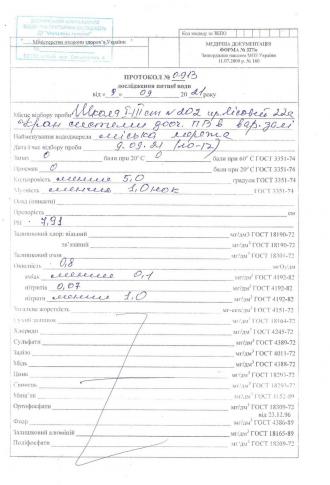 Код закладу за ЗКПО
Міністерство охорони здоров'я України
МЕДИЧНА ДОКУМЕНТАЦІЯ
ФОРМА № 327/о
Затверджена наказом МОЗ України
11.07.2000 р. № 160
ПРОТОКОЛ № 0913
дослідження питної води
від « 9 » 09 2021 року
Місце відбору проби Школа І-ІІІ ст №202 пр.Лісовий 22а
кран системи дооч. ПВ в вар. залі
Найменування вододжерела міська мережа
Дата і час відбору проби 9.09.21 (10-12)
Запах 0 бали при 20˚С 0 бали при 60˚ С ГОСТ 3351-74
Присмак 0 бали при 20˚ С ГОСТ 3351-74
Кольоровість менше 5,0 градуси ГОСТ 3351-74
Мутність менша 1,0 нок мг/дм³ ГОСТ 3351-74
Осад (описати)
Прозорість см
РН 7,91
Залишковий хлор: вільний мг/дм3 ГОСТ 18190-72
зв'язаний мг/дм³ ГОСТ 18190-72
Залишковий озон мг/дм³ ГОСТ 18301-72
Окисність 0,8 мгО₂/дм
аміак менше 0,1 мг/дм³ ГОСТ 4192-82
нітритів 0,07 мг/дм³ ГОСТ 4192-82
нітрати менше 1,0 мг/дм³ ГОСТ 4192-82
Загальна жорсткість мг-екв/дм³ ГОСТ 4151-72
Сухий залишок мг/дм³ ГОСТ 18164-72
Хлориди мг/дм³ ГОСТ 4245-72
Сульфати мг/дм³ ГОСТ 4389-72
Залізо мг/дм³ ГОСТ 4011-72
Мідь мг/дм³ ГОСТ 4388-72
Цинк мг/дм³ ГОСТ 18293-72
Свинець мг/дм³ ГОСТ 18293-72
Миш'як мг/дм³ ГОСТ 4152-89
Ортофосфати мг/дм³ ГОСТ 18309-72
від 23.12.96
Фтор мг/дм³ ГОСТ 4386-89
Залишковий алюміній мг/дм³ ГОСТ 18165-89
Поліфосфати мг/дм³ ГОСТ 18309-72